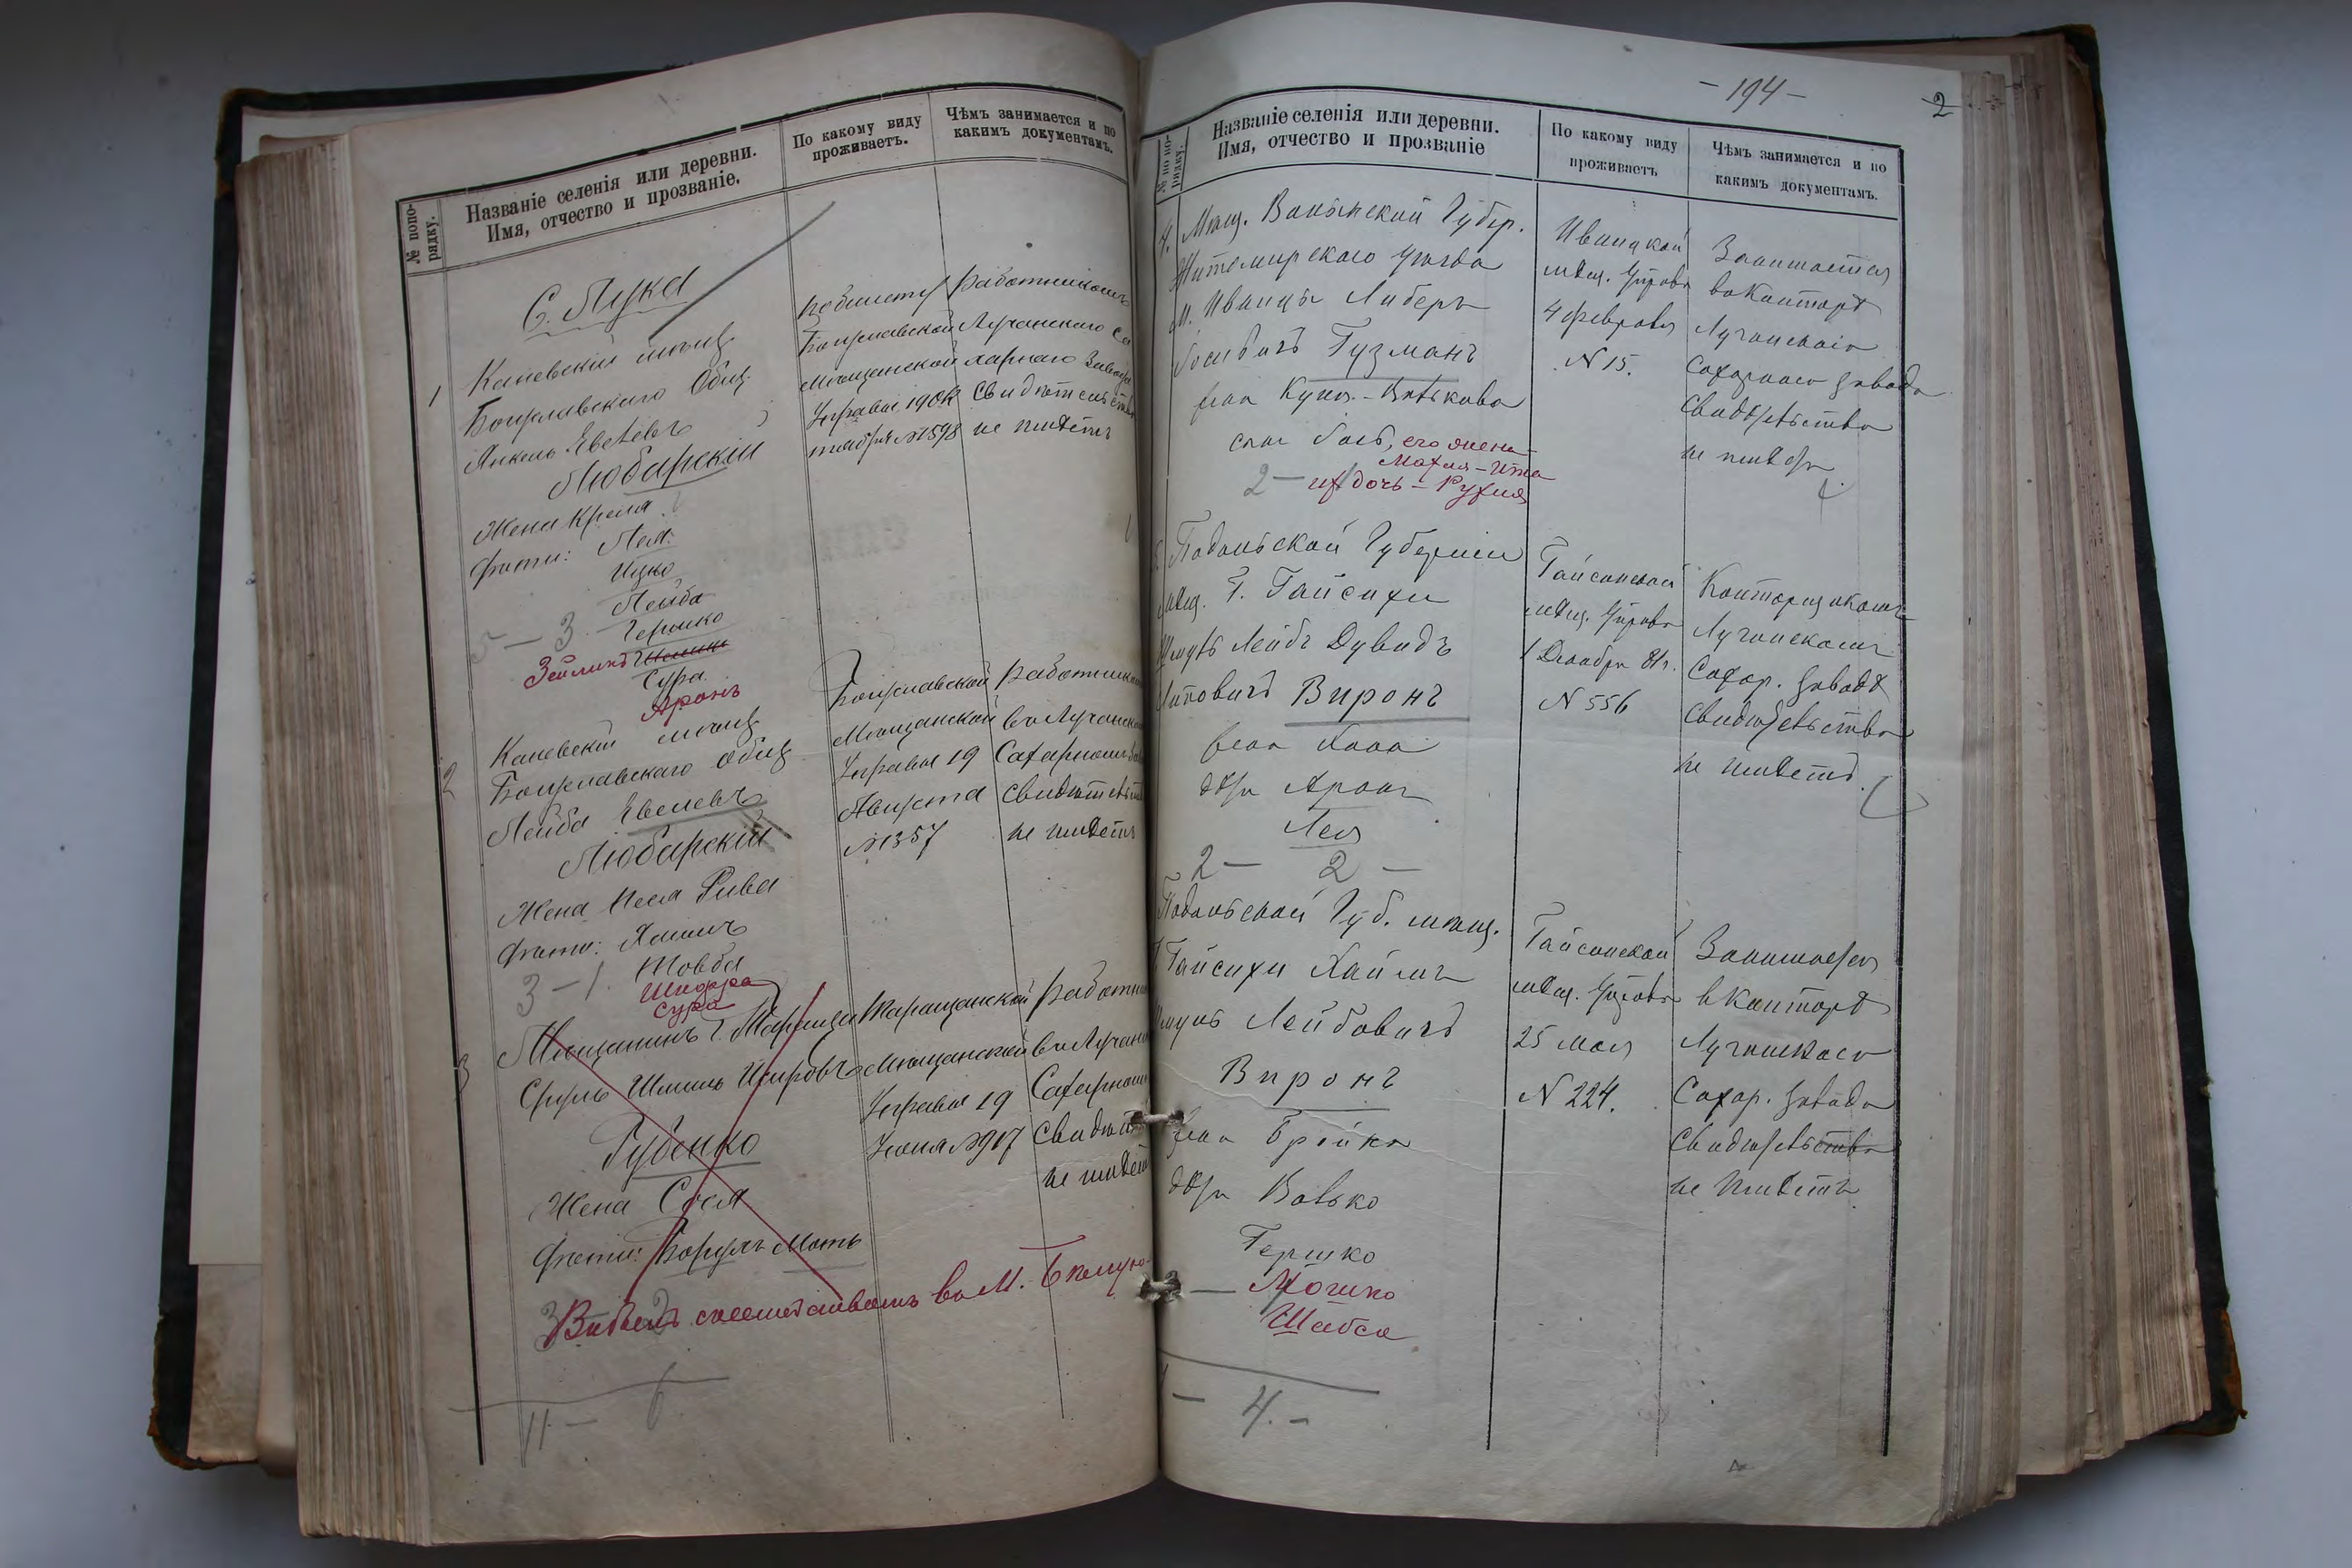 № попо-
рядку.
Названіе селенія или деревни.
Имя, отчество и прозваніе.
По какому виду
проживаетъ.
Чѣмъ занимается и по
какимъ документамъ.
С. Лука
1
Каневскій мѣщ.
Богуславскаго Общ.
Янкель Евелевъ
Любарскій
Жена Крейна
Дѣти: Лея
Ицко
Лейба
5 — 3
Гершко
Зейликъ
Сура
Аронъ
по билету
Богуславской
Мѣщанской
Управы 19 Ок
тября №1598
Работникомъ
Лучанскаго Са
харнаго Завода
Свидѣтельства
не имѣетъ
2
Каневскій мѣщ.
Богуславскаго Общ.
Лейба Евелевъ
Любарскій
Жена Песя Рива
Дѣти: Хаимъ
Товба
3 - 1.
Шифра
Сура
Богуславской
Мѣщанской
Управы 19
Августа
№1357
Работникомъ
въ Лучанском
Сахарномъ За
Свидѣтельст
не имѣетъ
3
Мѣщанинъ Г. Таращи
Сруль Шмиль
Губенко
Жена Сося
Дѣти: Борухъ Моть
Таращанской
Мѣщанской
Управы 19
Іюня №917
Работни
въ Лучан
Сахарном
Свидѣт
не имѣет
Выбылъ въ М.
11 — 6
— 194 —
2
№ по по-
рядку.
Названіе селенія или деревни.
Имя, отчество и прозваніе
По какому виду
проживаетъ
Чѣмъ занимается и по
какимъ документамъ.
4. Мѣщ. Волынской Губер.
Житомирскаго уѣзда
м. Иваницы Либеръ
Гузманъ
сынъ его жена
Малия-Ита
2 — их дочь - Рухля
мѣщ. Управы
4 Февраля
N 15.
Занимается
въ Конторѣ
Лучанскаго
Сахарнаго Завода
Свидѣтельства
не имѣетъ
Подольской Губерніи
мѣщ. Г. Гайсина
Шмуль Лейбъ Дувидъ
Виронъ
жена Хана
дѣти Аронъ
Лея
2 — 2 —
Гайсинской
мѣщ. Управы
1 Декабря 81 г.
N 556
Конторщикомъ
Лучанскомъ
Сахар. Заводѣ
Свидѣтельства
не имѣетъ
Подольской Губ. мѣщ.
Гайсина Хаимъ
Шмуль Лейбовичъ
Виронъ
жена Брейна
дѣти Волько
Гершко
— Мошко
Шабса
Гайсинской
мѣщ. Управы
25 Мая
N 224.
Занимается
в Конторѣ
Лучанскаго
Сахар. Завода
Свидѣтельства
не Имѣетъ
— 4. —